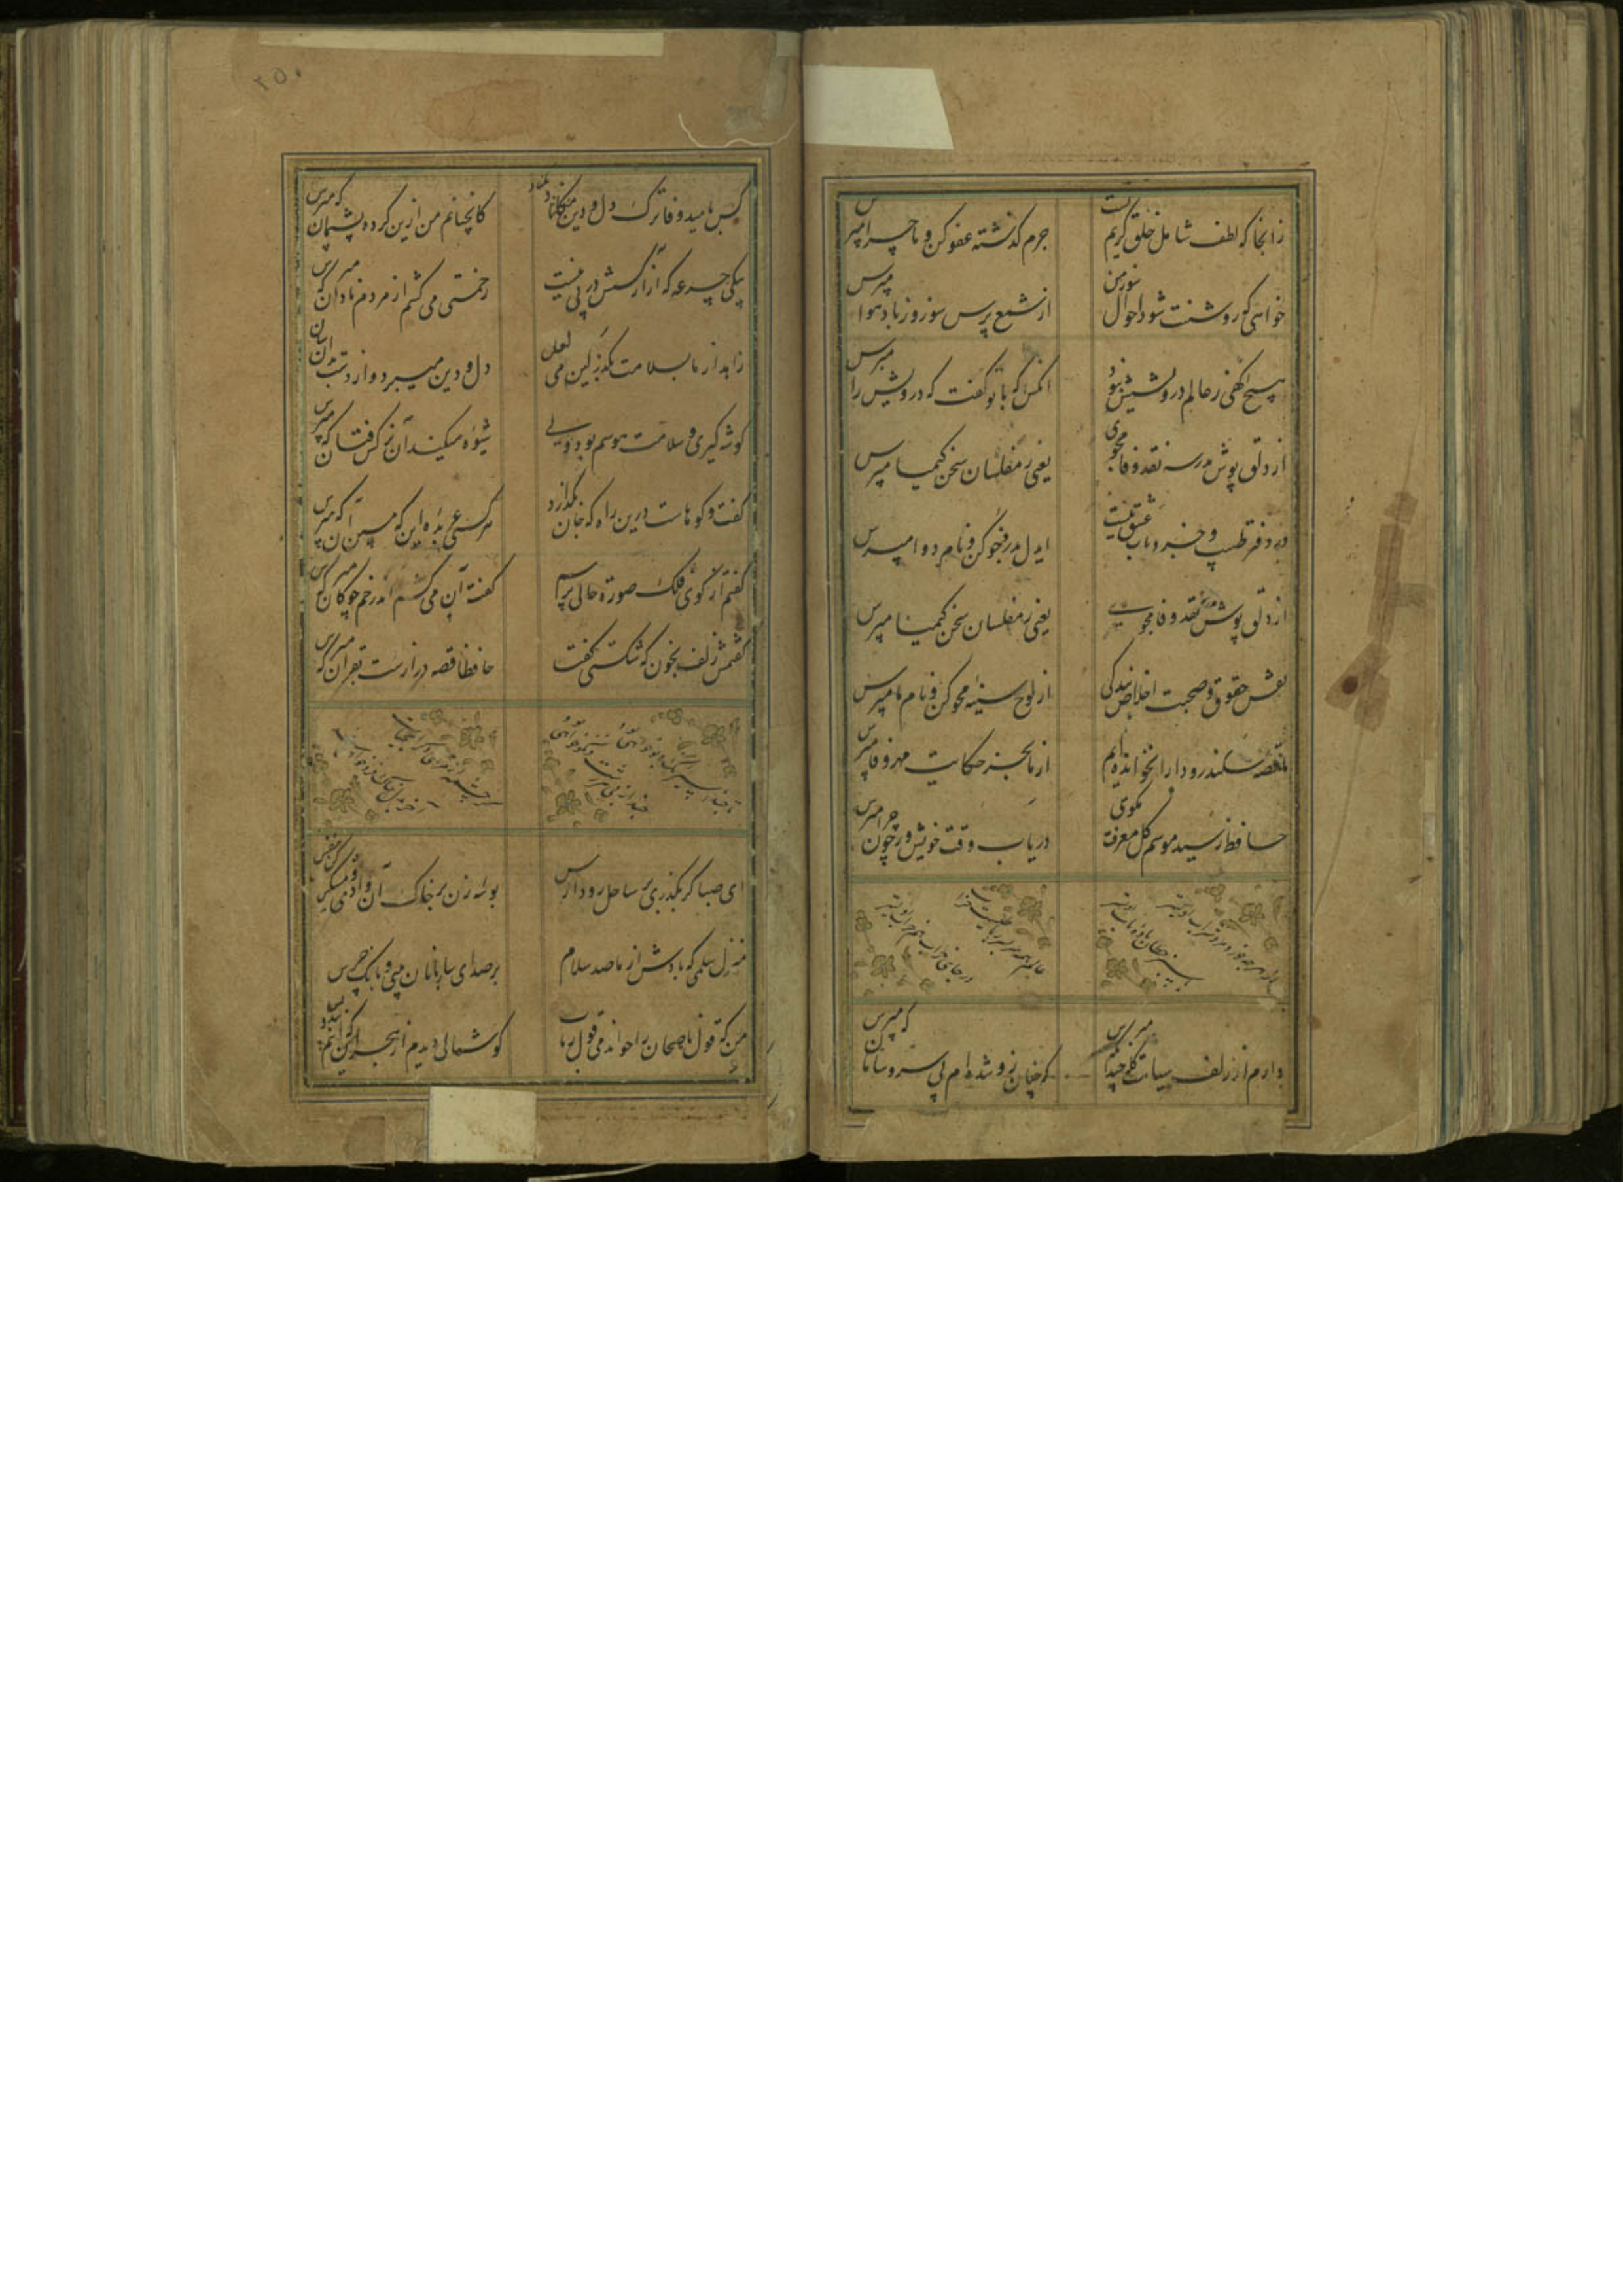 زانجا که لطف شامل خلق کریم تست
جرم گذشته عفو کن و ماجرا مپرس
خواهی که روشنت شود احوال سوز من
از شمع پرس سوز و ز باد هوا مپرس
هیچ آگهی ز عالم درویشیش نبود
آنکس که با تو گفت که درویش را مپرس
از دلق پوش مدرسه نقد وفا مجوی
یعنی ز مفلسان سخن کیمیا مپرس
در دفتر طبیب و خرد باب عشق نیست
ای دل بدرد خو کن و نام دوا مپرس
از دلق پوش مدرسه نقد وفا مجوی
یعنی ز مفلسان سخن کیمیا مپرس
نقش حقوق و صحبت اخلاص بندگی
از لوح سینه محو کن و نام ما مپرس
ما قصه سکندر و دارا نخوانده‌ایم
از ما بجز حکایت مهر و وفا مپرس
حافظ رسید موسم گل معرفت مگوی
دریاب وقت خویش و ز چون چرا مپرس
دارم از زلف سیاهت گله چندان که مپرس
که چنان زو شده‌ام بی سر و سامان که مپرس
کس بامید وفا ترک دل و دین مکناد
کانچنانم من ازین کرده پشیمان که مپرس
بیکی جرعه که آزار کسش در پی نیست
زحمتی می کشم از مردم نادان که مپرس
زاهد از ما بسلامت بگذر کین می لعل
دل و دین میبرد از دست بدان سان
گوشه گیری و سلامت هوسم بود ولی
شیوه میکند آن نرگس فتان که مپرس
گفت و گوهاست درین راه که جان بگدازد
هر کسی عربده این که مبین آن که مپرس
گفتم از گوی فلک صورة حالی پرسم
گفت آن می کشم اندر خم چوگان که مپرس
گفتمش زلف بخون که شکستی گفت
حافظا قصه درازست بقرآن که مپرس
ای صبا گر بگذری بر ساحل رود ارس
بوسه زن بر خاک آن وادی و مشکین کن نفس
منزل سلمی که بادش از ما صد سلام
بر صدای ساربانان بینی و بانگ جرس
من که قول ناصحان را خواندمی قول رباب
گوشمالی دیدم از هجران که اینم پند بس